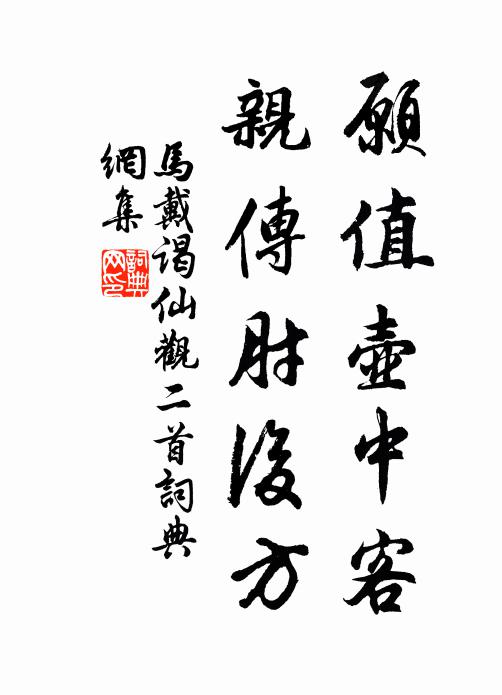 願值壺中客
親傳肘後方
馬戴謁仙觀二首詞典
網集
詞典
网印